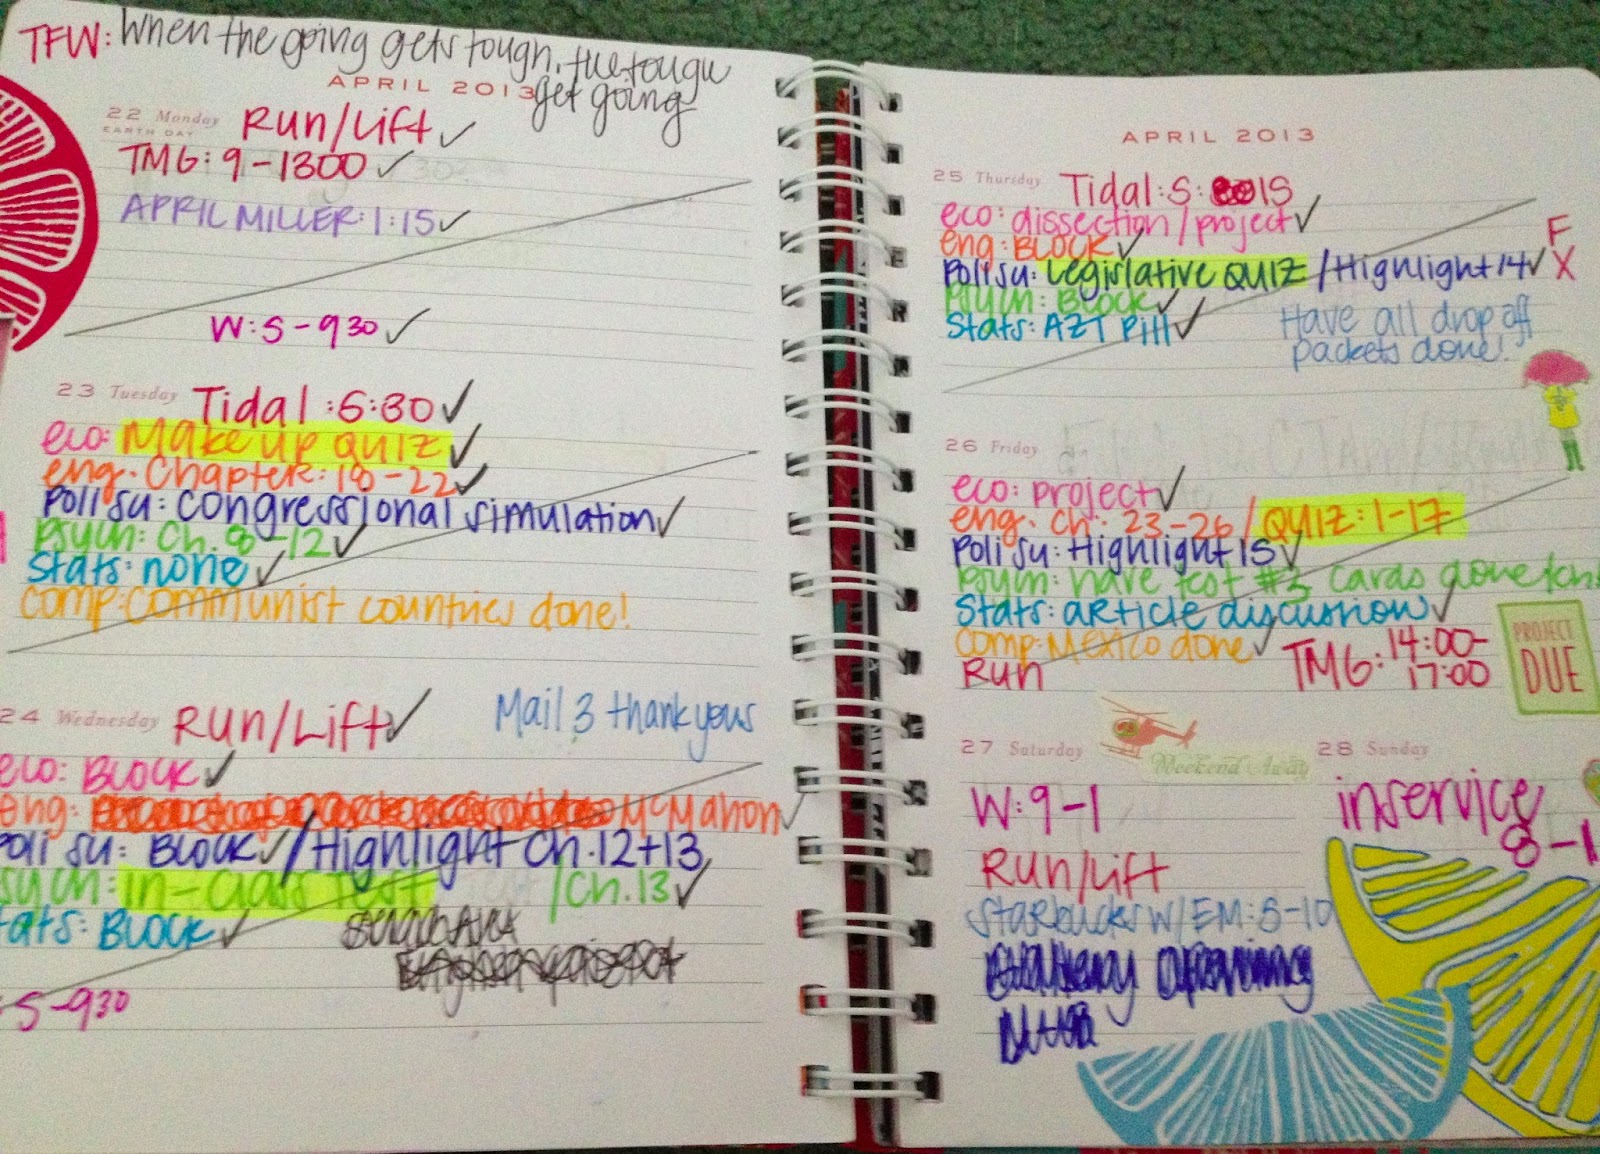 TFW: When the going gets tough, the tough
get going
APRIL 2013
22 Monday Run/Lift ✓
EARTH DAY
TMG: 9-1300 ✓
APRIL MILLER: 1:15 ✓
W: 5-930 ✓
23 Tuesday Tidal: 5:30 ✓
eco: Make up QUIZ ✓
eng: Chapter: 18-22 ✓
poli su: congressional simulation ✓
psych: Ch. 8-12 ✓
stats: none ✓
comp: communist countries done!
24 Wednesday Run/Lift ✓
Mail 3 thank yous
eco: BLOCK ✓
eng: McMahon ✓
poli su: BLOCK ✓ / Highlight Ch. 12+13
psych: in-class test / Ch. 13 ✓
stats: BLOCK ✓
: 5-930
APRIL 2013
25 Thursday Tidal: 5: 15
eco: dissection/project ✓
eng: BLOCK ✓
poli su: Legislative QUIZ / Highlight 14 ✓
F
X
psych: Block ✓
stats: AZT Pill ✓
Have all drop off
packets done!
26 Friday
eco: project ✓
eng: Ch. 23-26 / QUIZ: 1-17
poli su: Highlight 15 ✓
psych: have test #3 cards done
stats: article discussion ✓
comp: Mexico done ✓
Run
TMG: 14:00-
17:00
PROJECT
DUE
27 Saturday
Weekend Away
W: 9-1
Run/Lift
Starbucks W/EM: 5-10
28 Sunday
inservice
8-1